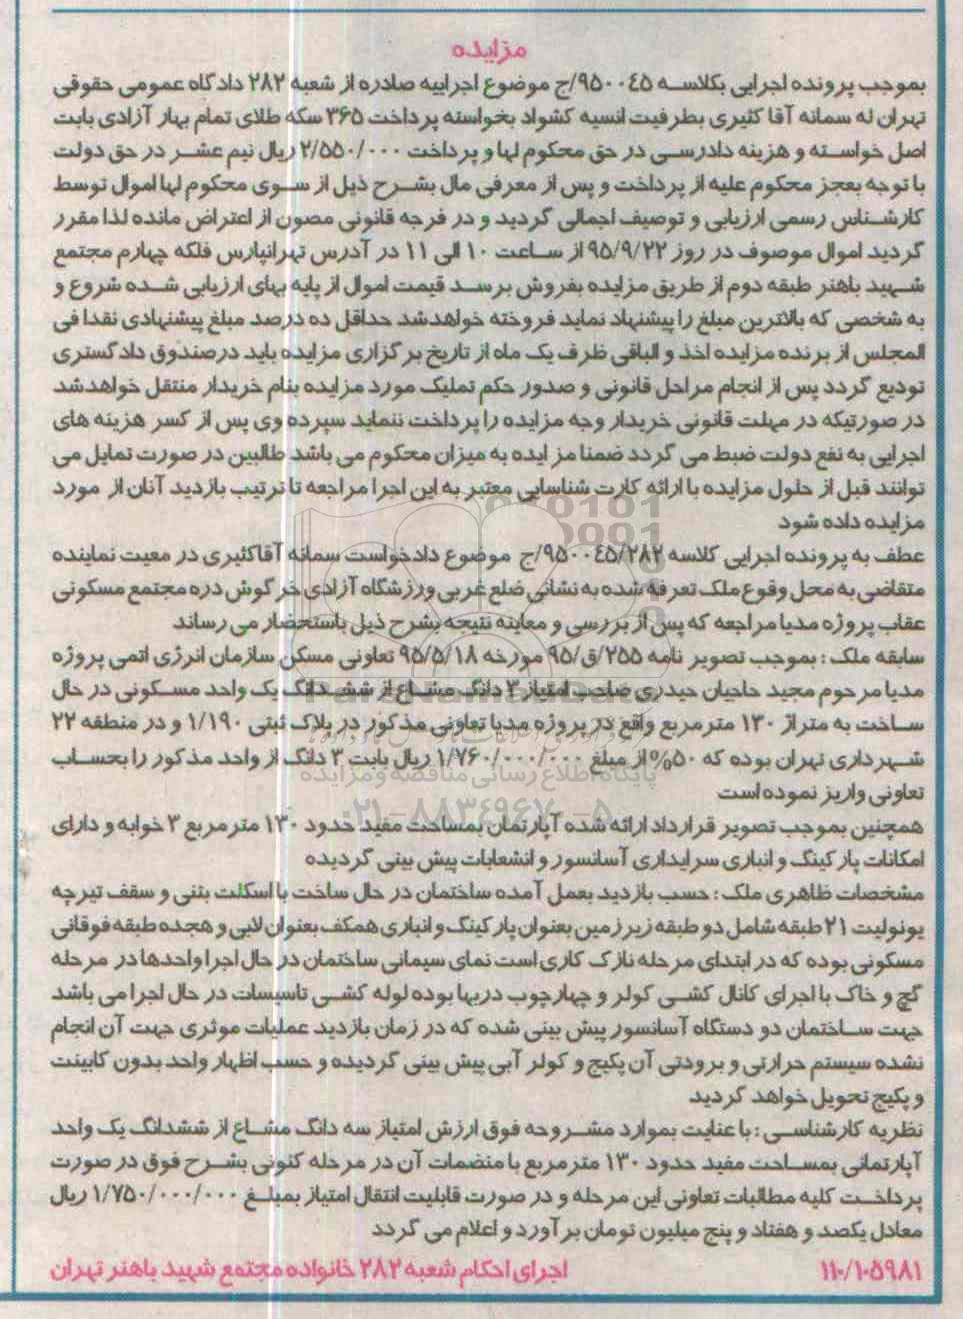 مزایده
بموجب پرونده اجرایی بکلاسه ۹۵۰۰۴۵/ج موضوع اجراییه صادره از شعبه ۲۸۲ دادگاه عمومی حقوقی
تهران له سمانه آقا کثیری بطرفیت انسیه کشواد بخواسته پرداخت ۳۶۵ سکه طلای تمام بهار آزادی بابت
اصل خواسته و هزینه دادرسی در حق محکوم لها و پرداخت ۲/۵۵۰/۰۰۰ ریال نیم عشر در حق دولت
با توجه بعجز محکوم علیه از پرداخت و پس از معرفی مال بشرح ذیل از سوی محکوم لها اموال توسط
کارشناس رسمی ارزیابی و توصیف اجمالی گردید و در فرجه قانونی مصون از اعتراض مانده لذا مقرر
گردید اموال موصوف در روز ۹۵/۹/۲۲ از ساعت ۱۰ الی ۱۱ در آدرس تهرانپارس فلکه چهارم مجتمع
شهید باهنر طبقه دوم از طریق مزایده بفروش برسد قیمت اموال از پایه بهای ارزیابی شده شروع و
به شخصی که بالاترین مبلغ را پیشنهاد نماید فروخته خواهدشد حداقل ده درصد مبلغ پیشنهادی نقدا فی
المجلس از برنده مزایده اخذ و الباقی ظرف یک ماه از تاریخ برگزاری مزایده باید درصندوق دادگستری
تودیع گردد پس از انجام مراحل قانونی و صدور حکم تملیک مورد مزایده بنام خریدار منتقل خواهدشد
در صورتیکه در مهلت قانونی خریدار وجه مزایده را پرداخت ننماید سپرده وی پس از کسر هزینه های
اجرایی به نفع دولت ضبط می گردد ضمنا مزایده به میزان محکوم می باشد طالبین در صورت تمایل می
توانند قبل از حلول مزایده با ارائه کارت شناسایی معتبر به این اجرا مراجعه تا ترتیب بازدید آنان از مورد
مزایده داده شود
عطف به پرونده اجرایی کلاسه ۹۵۰۰۴۵/۲۸۲/ج موضوع دادخواست سمانه آقاکثیری در معیت نماینده
متقاضی به محل وقوع ملک تعرفه شده به نشانی ضلع غربی ورزشگاه آزادی خرگوش دره مجتمع مسکونی
عقاب پروژه مدیا مراجعه که پس از بررسی و معاینه نتیجه بشرح ذیل باستحضار می رساند
سابقه ملک : بموجب تصویر نامه ۲۵۵/ق/۹۵ مورخه ۹۵/۵/۱۸ تعاونی مسکن سازمان انرژی اتمی پروژه
مدیا مرحوم مجید حاجیان حیدری صاحب امتیاز ۳ دانگ مشاع از ششدانگ یک واحد مسکونی در حال
ساخت به متراژ ۱۳۰ مترمربع واقع در پروژه مدیا تعاونی مذکور در پلاک ثبتی ۱/۱۹۰ و در منطقه ۲۲
شهرداری تهران بوده که ۵۰% از مبلغ ۱/۷۶۰/۰۰۰/۰۰۰ ریال بابت ۳ دانگ از واحد مذکور را بحساب
تعاونی واریز نموده است
همچنین بموجب تصویر قرارداد ارائه شده آپارتمان بمساحت مفید حدود ۱۳۰ مترمربع ۳ خوابه و دارای
امکانات پارکینگ و انباری سرایداری آسانسور و انشعابات پیش بینی گردیده
مشخصات ظاهری ملک : حسب بازدید بعمل آمده ساختمان در حال ساخت با اسکلت بتنی و سقف تیرچه
یونولیت ۲۱ طبقه شامل دو طبقه زیرزمین بعنوان پارکینگ و انباری همکف بعنوان لابی و هجده طبقه فوقانی
مسکونی بوده که در ابتدای مرحله نازک کاری است نمای سیمانی ساختمان در حال اجرا واحدها در مرحله
گچ و خاک با اجرای کانال کشی کولر و چهارچوب دربها بوده لوله کشی تاسیسات در حال اجرا می باشد
جهت ساختمان دو دستگاه آسانسور پیش بینی شده که در زمان بازدید عملیات موثری جهت آن انجام
نشده سیستم حرارتی و برودتی آن پکیج و کولر آبی پیش بینی گردیده و حسب اظهار واحد بدون کابینت
و پکیج تحویل خواهد گردید
نظریه کارشناسی : با عنایت بموارد مشروحه فوق ارزش امتیاز سه دانگ مشاع از ششدانگ یک واحد
آپارتمانی بمساحت مفید حدود ۱۳۰ مترمربع با منضمات آن در مرحله کنونی بشرح فوق در صورت
پرداخت کلیه مطالبات تعاونی این مرحله و در صورت قابلیت انتقال امتیاز بمبلغ ۱/۷۵۰/۰۰۰/۰۰۰ ریال
معادل یکصد و هفتاد و پنج میلیون تومان برآورد و اعلام می گردد
۱۱۰/۱۰۵۹۸۱ اجرای احکام شعبه ۲۸۲ خانواده مجتمع شهید باهنر تهران
ParsNamadData
پایگاه اطلاع رسانی مناقصه و مزایده
۰۲۱-۸۸۳۴۹۶۷۰-۵